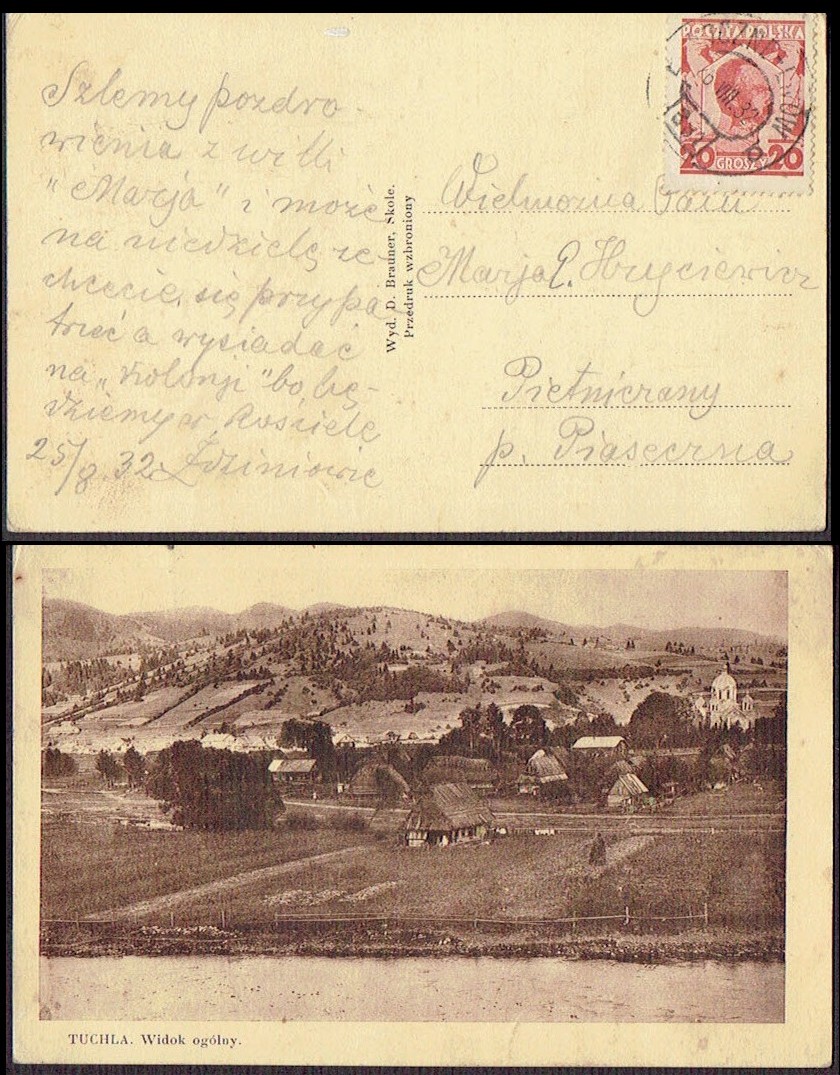 Szlemy pozdro-
wienia z willi
"Marja" i może
na niedzielę ze-
chcecie się przypa-
trzeć a wysiadać
na „Kolonji" bo bę-
dziemy w Kościele
25/8.32.
Wyd. D. Brauner, Skole.
Przedruk wzbroniony
POCZTA POLSKA
20 GROSZY 20
VIII.32
Wielmożna Pani
Marja Hryciewicz
Pietniczany
p. Piaseczna
TUCHLA. Widok ogólny.